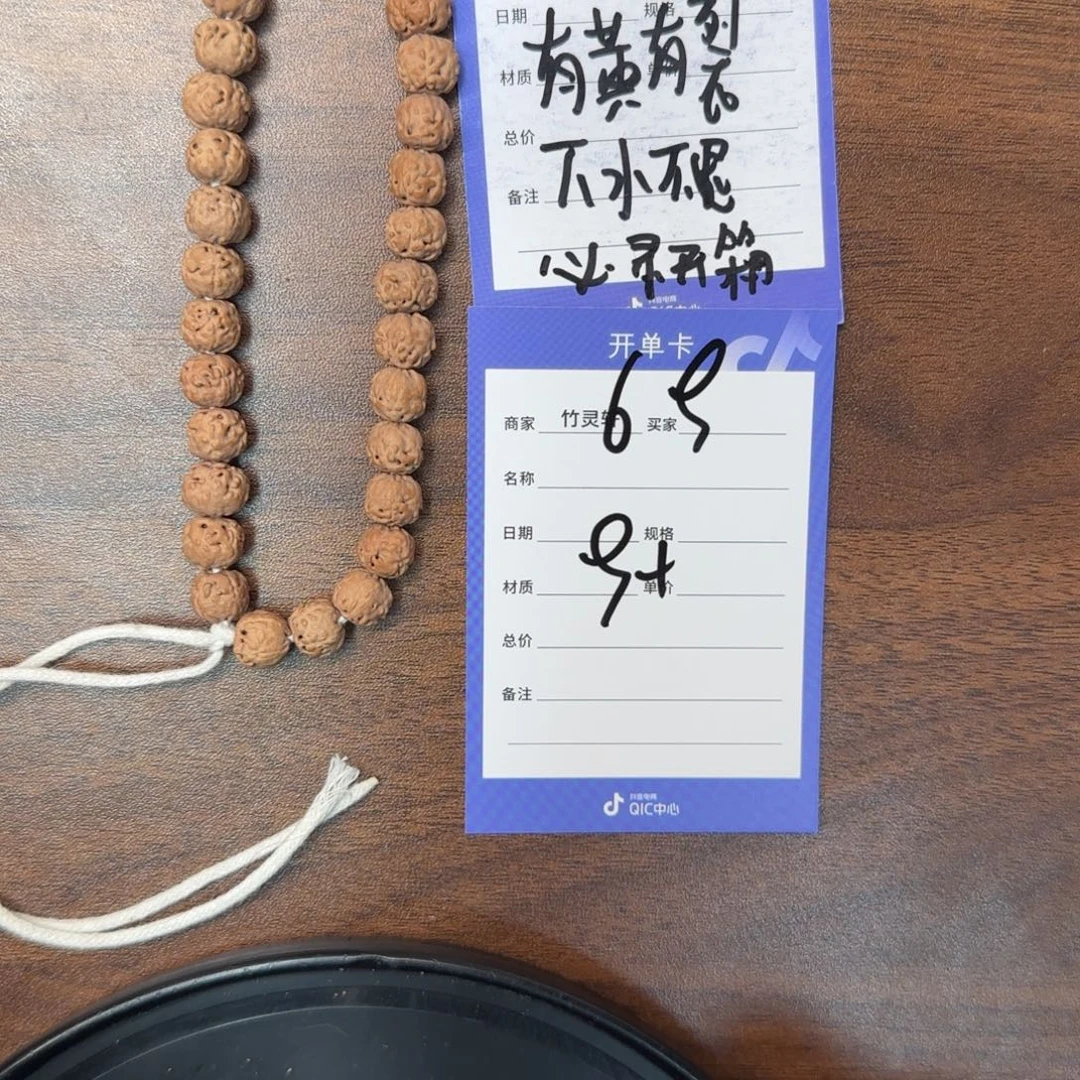 日期 规格
有黄有裂
材质
不水不退
总价
备注
必录开箱
抖音电商
开单卡
6号
商家 竹灵轩 买家
名称
日期 规格
9+
材质 单价
总价
备注
抖音电商
QIC中心